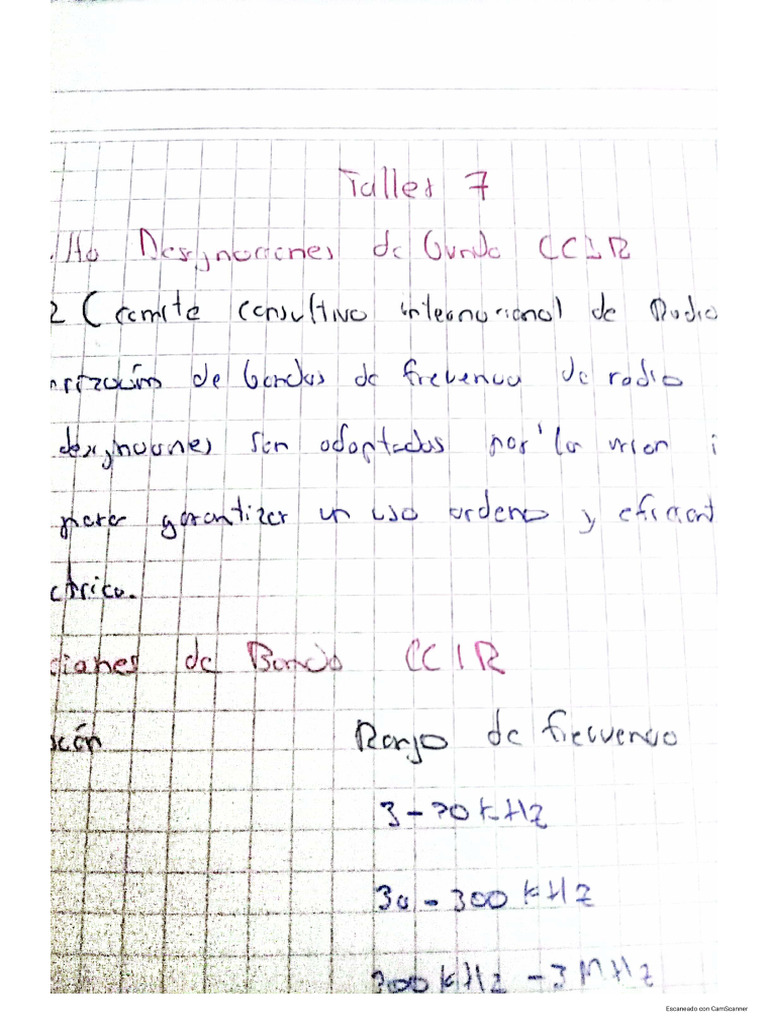 Taller 7
Designaciones de Banda CCIR
(comite consultivo internacional de Radio
de bandas de frecuencia de radio
designaciones son adoptadas por la union i
para garantizar un uso ordeno y eficient
ctrico.
ciones de Banda CCIR
ción Rango de frecuencia
3-30 KHZ
30-300 KHZ
300 KHZ - 3 MHZ
Escaneado con CamScanner